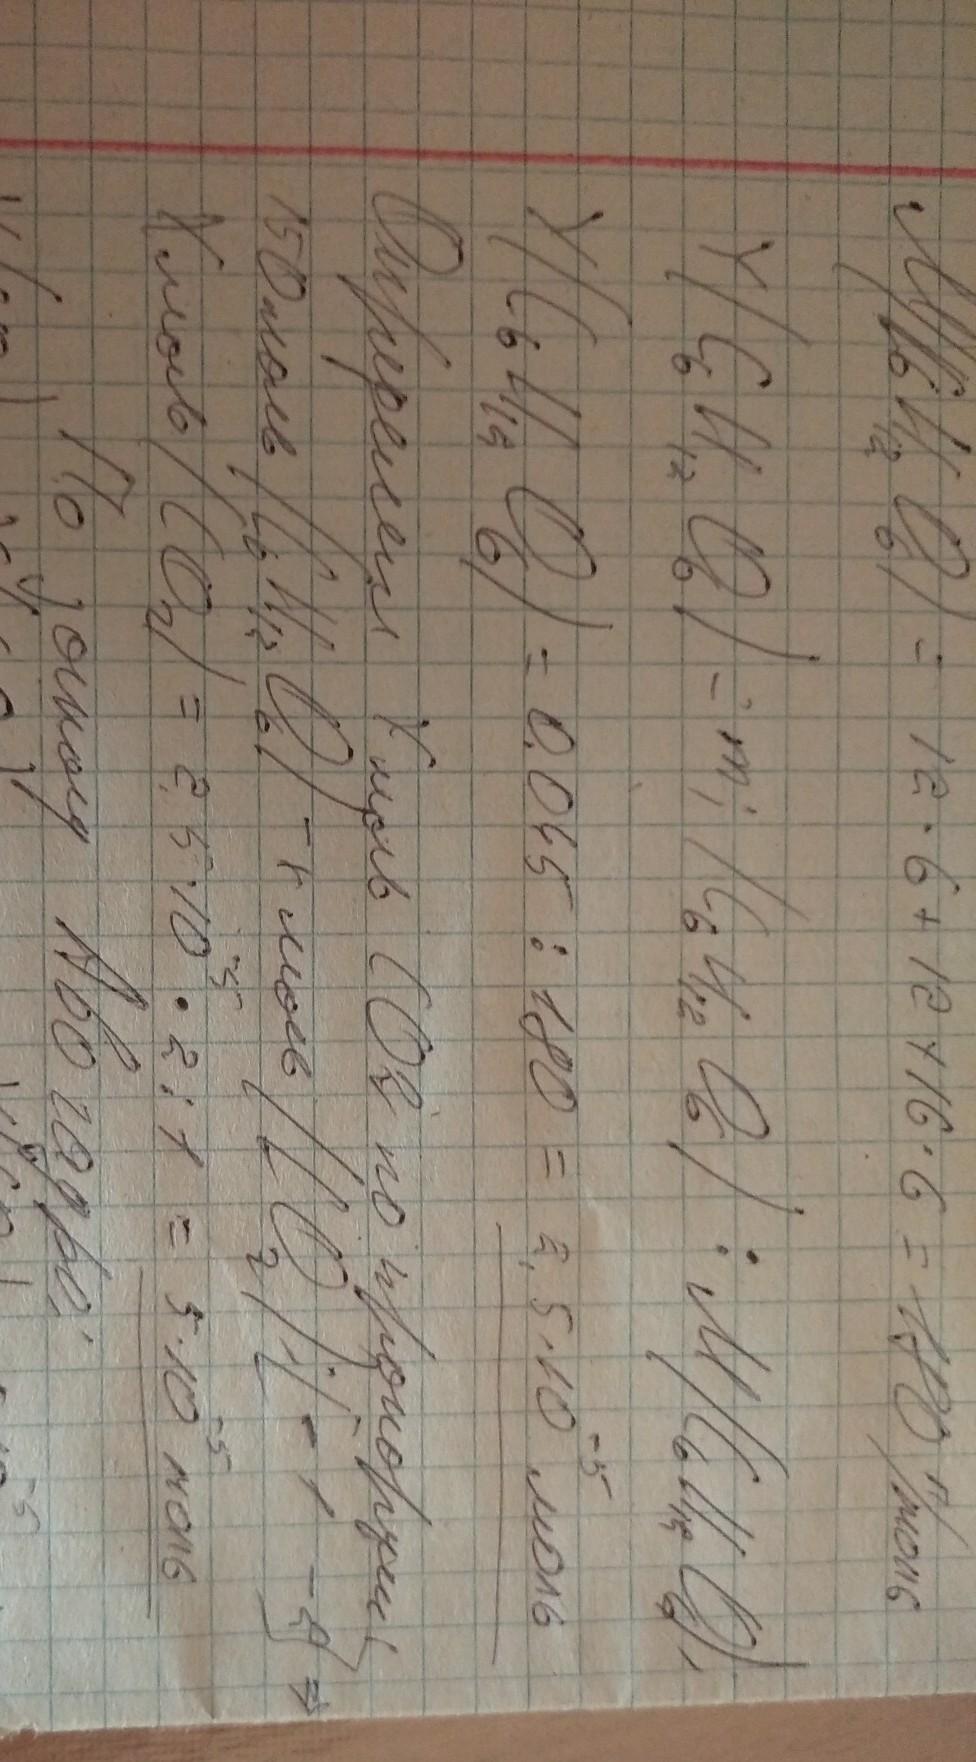 M(C₆H₁₂O₆) = 12·6+12+16·6 = 180 г/моль
γ(C₆H₁₂O₆) = m(C₆H₁₂O₆) : M(C₆H₁₂O₆),
γ(C₆H₁₂O₆) = 0,045 : 180 = 2,5·10⁻⁵ моль
Определяем x моль CO₂ по пропорции
моль (C₆H₁₂O₆) - x моль (CO₂)
x моль (CO₂) = 2,5·10⁻⁵ · 2 : 1 = 5·10⁻⁵ моль
По закону Авогадро: